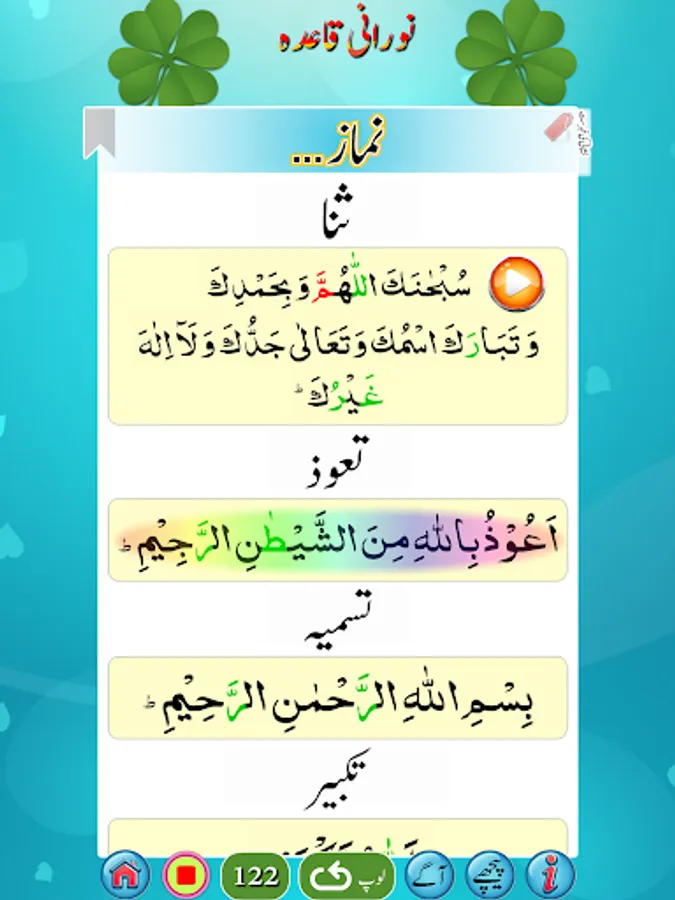 نورانی قاعدہ
نماز...
ثنا
سُبْحٰنَكَ اللّٰهُمَّ وَ بِحَمْدِكَ
وَ تَبَارَكَ اسْمُكَ وَ تَعَالٰى جَدُّكَ وَ لَآ اِلٰهَ
غَيْرُكَ ؕ
تعوذ
اَعُوْذُ بِاللّٰهِ مِنَ الشَّيْطٰنِ الرَّجِيْمِ ؕ
تسمیہ
بِسْمِ اللّٰهِ الرَّحْمٰنِ الرَّحِيْمِ ؕ
تکبیر
122
لوپ
آگے
پیچھے
i